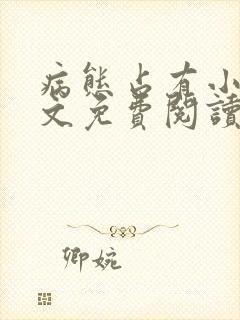 病態占有小
文免費閱讀
卿婉